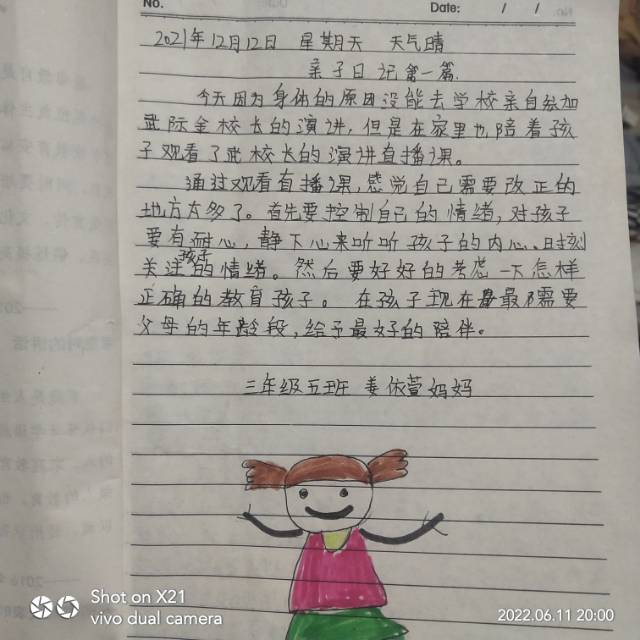 No.
Date: / /
2021年12月12日 星期天 天气晴
亲子日记第一篇.
今天因为身体的原因没能去学校亲自参加
武际金校长的演讲,但是在家里也陪着孩
子观看了武校长的演讲直播课。
通过观看直播课,感觉自己需要改正的
地方太多了。首先要控制自己的情绪,对孩子
要有耐心,静下心来听听孩子的内心。时刻
关注孩子的情绪。然后要好好的考虑一下怎样
正确的教育孩子。在孩子现在最需要
父母的年龄段,给予最好的陪伴。
三年级五班 姜依萱妈妈
Shot on X21
vivo dual camera
2022.06.11 20:00